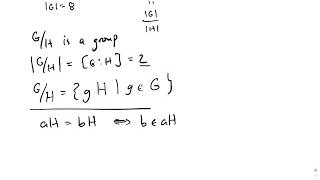 |G| = 8
"
|G|
|H|
G/H is a group
|G/H| = [G:H] = 2
G/H = { gH | g ∈ G }
aH = bH ⟺ b ∈ aH